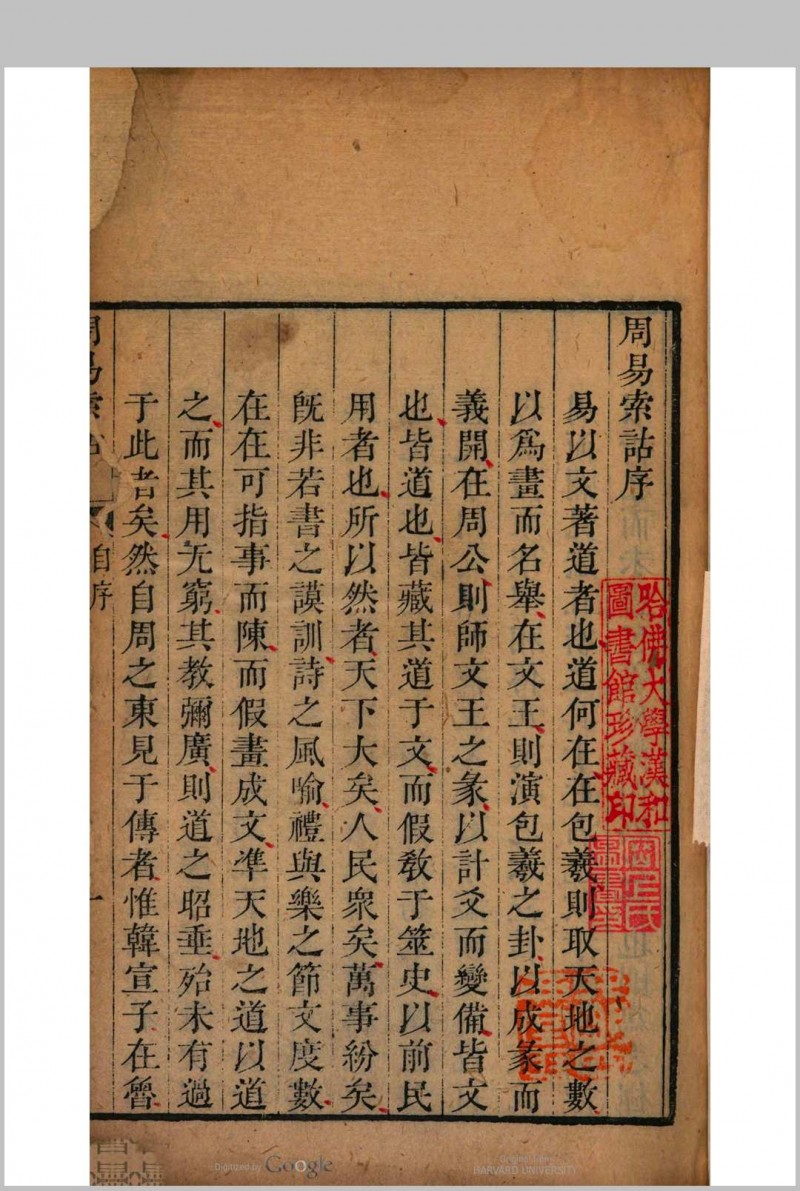 周易索詁序
易以文著道者也道何在在包羲則取天地之數
以爲畫而名舉在文王則演包羲之卦以成彖而
義開在周公則師文王之彖以計爻而變備皆文
也皆道也皆藏其道于文而假敎于筮史以前民
用者也所以然者天下大矣人民衆矣萬事紛矣
旣非若書之謨訓詩之風喻禮與樂之節文度數
在在可指事而陳而假畫成文凖天地之道以道
之而其用无窮其教彌廣則道之昭垂殆未有過
于此者矣然自周之東見于傳者惟韓宣子在魯
周易索詁
自序
一
哈佛大學漢和
圖書館珍藏印
Digitized by Google
Original from
HARVARD UNIVERSITY